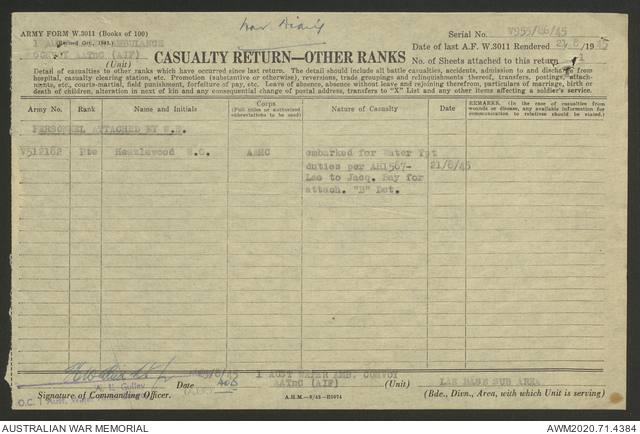 War Diary
ARMY FORM W.3011 (Books of 100)
Serial No. V955/86/45
CONVOY AATMC (AIF)
(Unit)
CASUALTY RETURN—OTHER RANKS
Date of last A.F. W.3011 Rendered 21/8/1945
No. of Sheets attached to this return
Detail of casualties to other ranks which have occurred since last return. The detail should include all battle casualties, accidents, admission to and discharge from
hospital, casualty clearing station, etc. Promotion (substantive or otherwise), reversions, trade groupings and relinquishments thereof, transfers, postings, attach-
ments, etc., courts-martial, field punishment, forfeiture of pay, etc. Leave of absence, absence without leave and rejoining therefrom, particulars of marriage, birth or
death of children, alteration in next of kin and any consequential change of postal address, transfers to "X" List and any other items affecting a soldier's service.
Army No. Rank Name and Initials Corps (Full titles or authorized abbreviations to be used) Nature of Casualty Date REMARKS. (In the case of casualties from wounds or disease, any available information for communication to relatives should be stated.)
PERSONNEL ATTACHED BY W.E.
V512182 Pte Heazlewood W.G. AAMC embarked for Water Tpt
duties per AH1567- 21/8/45
Lae to Jacq. Bay for
attach. "B" Det.
A. E. Gulley
Date 25/8/45 1 AUST WATER AMB. CONVOY
AATMC (AIF) (Unit) LAE BASE SUB AREA
Signature of Commanding Officer. A.H.M.—9/43—H5074 (Bde., Divn., Area, with which Unit is serving)
O.C. 1 Aust.
AUSTRALIAN WAR MEMORIAL AWM2020.71.4384